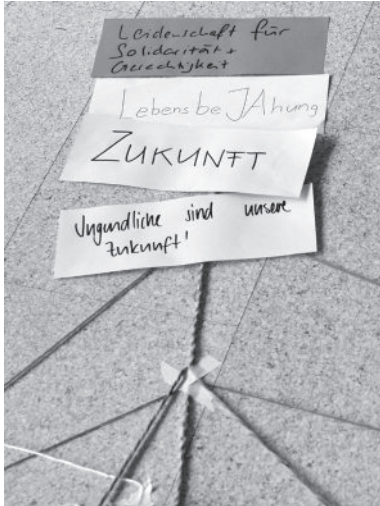 Leidenschaft für
Solidarität +
Gerechtigkeit
LebensbeJAhung
ZUKUNFT
Jugendliche sind unsere
Zukunft!